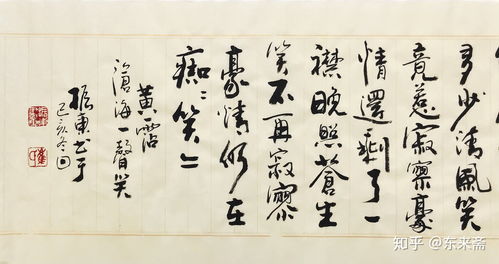 多少清風笑
竟惹寂寥豪
情還剩了一
襟晚照蒼生
笑不再寂寥
豪情仍在
痴〻笑〻
黃霑
滄海一聲笑
振東書于
己亥冬日
知乎 @东来斋